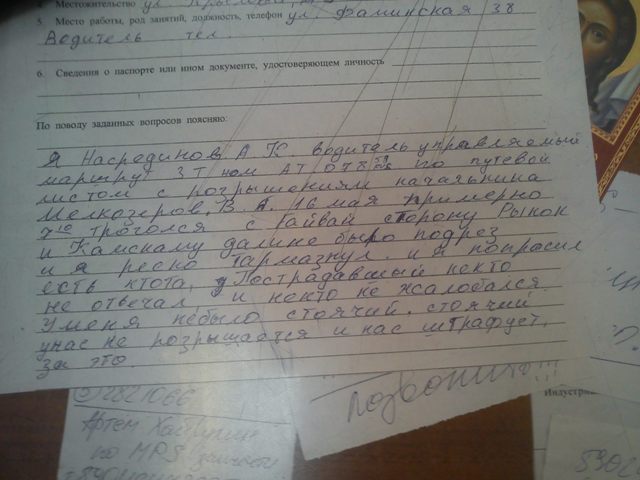 4. Местожительство ул.
5. Место работы, род занятий, должность, телефон ул. Фаминская 38
Водитель тел.
6. Сведения о паспорте или ином документе, удостоверяющем личность
По поводу заданных вопросов поясняю:
Я Насрединов А К водитель управляемый
маршрут 3Т ном АТ 078 59 по путевой
листом с розрышениям начальника
Мелкозеров. В. А. 16 мая примерно
троголся с Гайвай сторону Рынок
и Камскаму далине было подрез
и я резко тармазнул. и я попрасил
есть ктота, Пострадавший некто
не отвечал, и некто не жалобался
Уменя небыло стоячий. стоячий
унас не розрышается и нас штрафует.
за это.
позвонить!!!
Артём
по MPS
Индустри